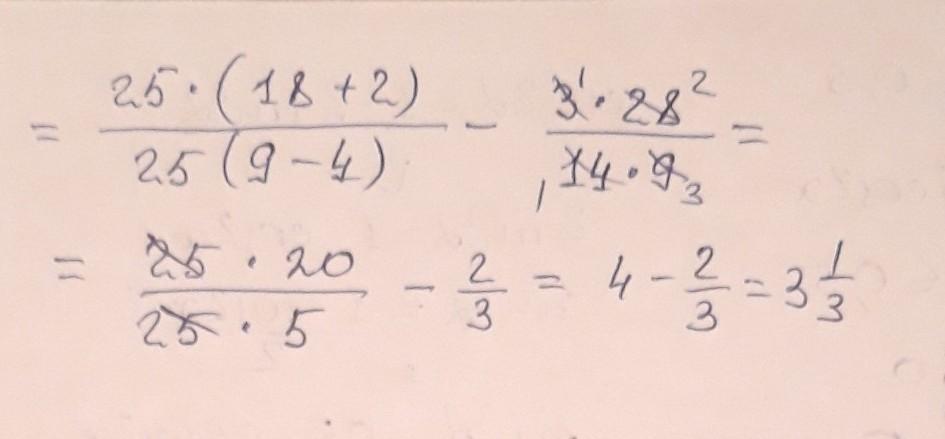 = 25·(18+2) / 25(9-4) - 3¹·28² / ₁14·9₃ =
= 25·20 / 25·5 - 2/3 = 4 - 2/3 = 3 1/3